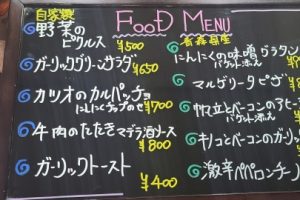 FOOD MENU
自家製
野菜の
ピクルス ¥500
ガーリックグリーンサラダ ¥650
カツオのカルパッチョ
にんにくチップのせ ¥700
牛肉のたたきマデラ酒ソース
¥800
ガーリックトースト
¥400
青森県産
にんにくの味噌グラタン
バケット添え
マルゲリータピザ
帆立とベーコンの
バケット添え
キノコとベーコンのガーリッ
激辛ペペロンチーノ